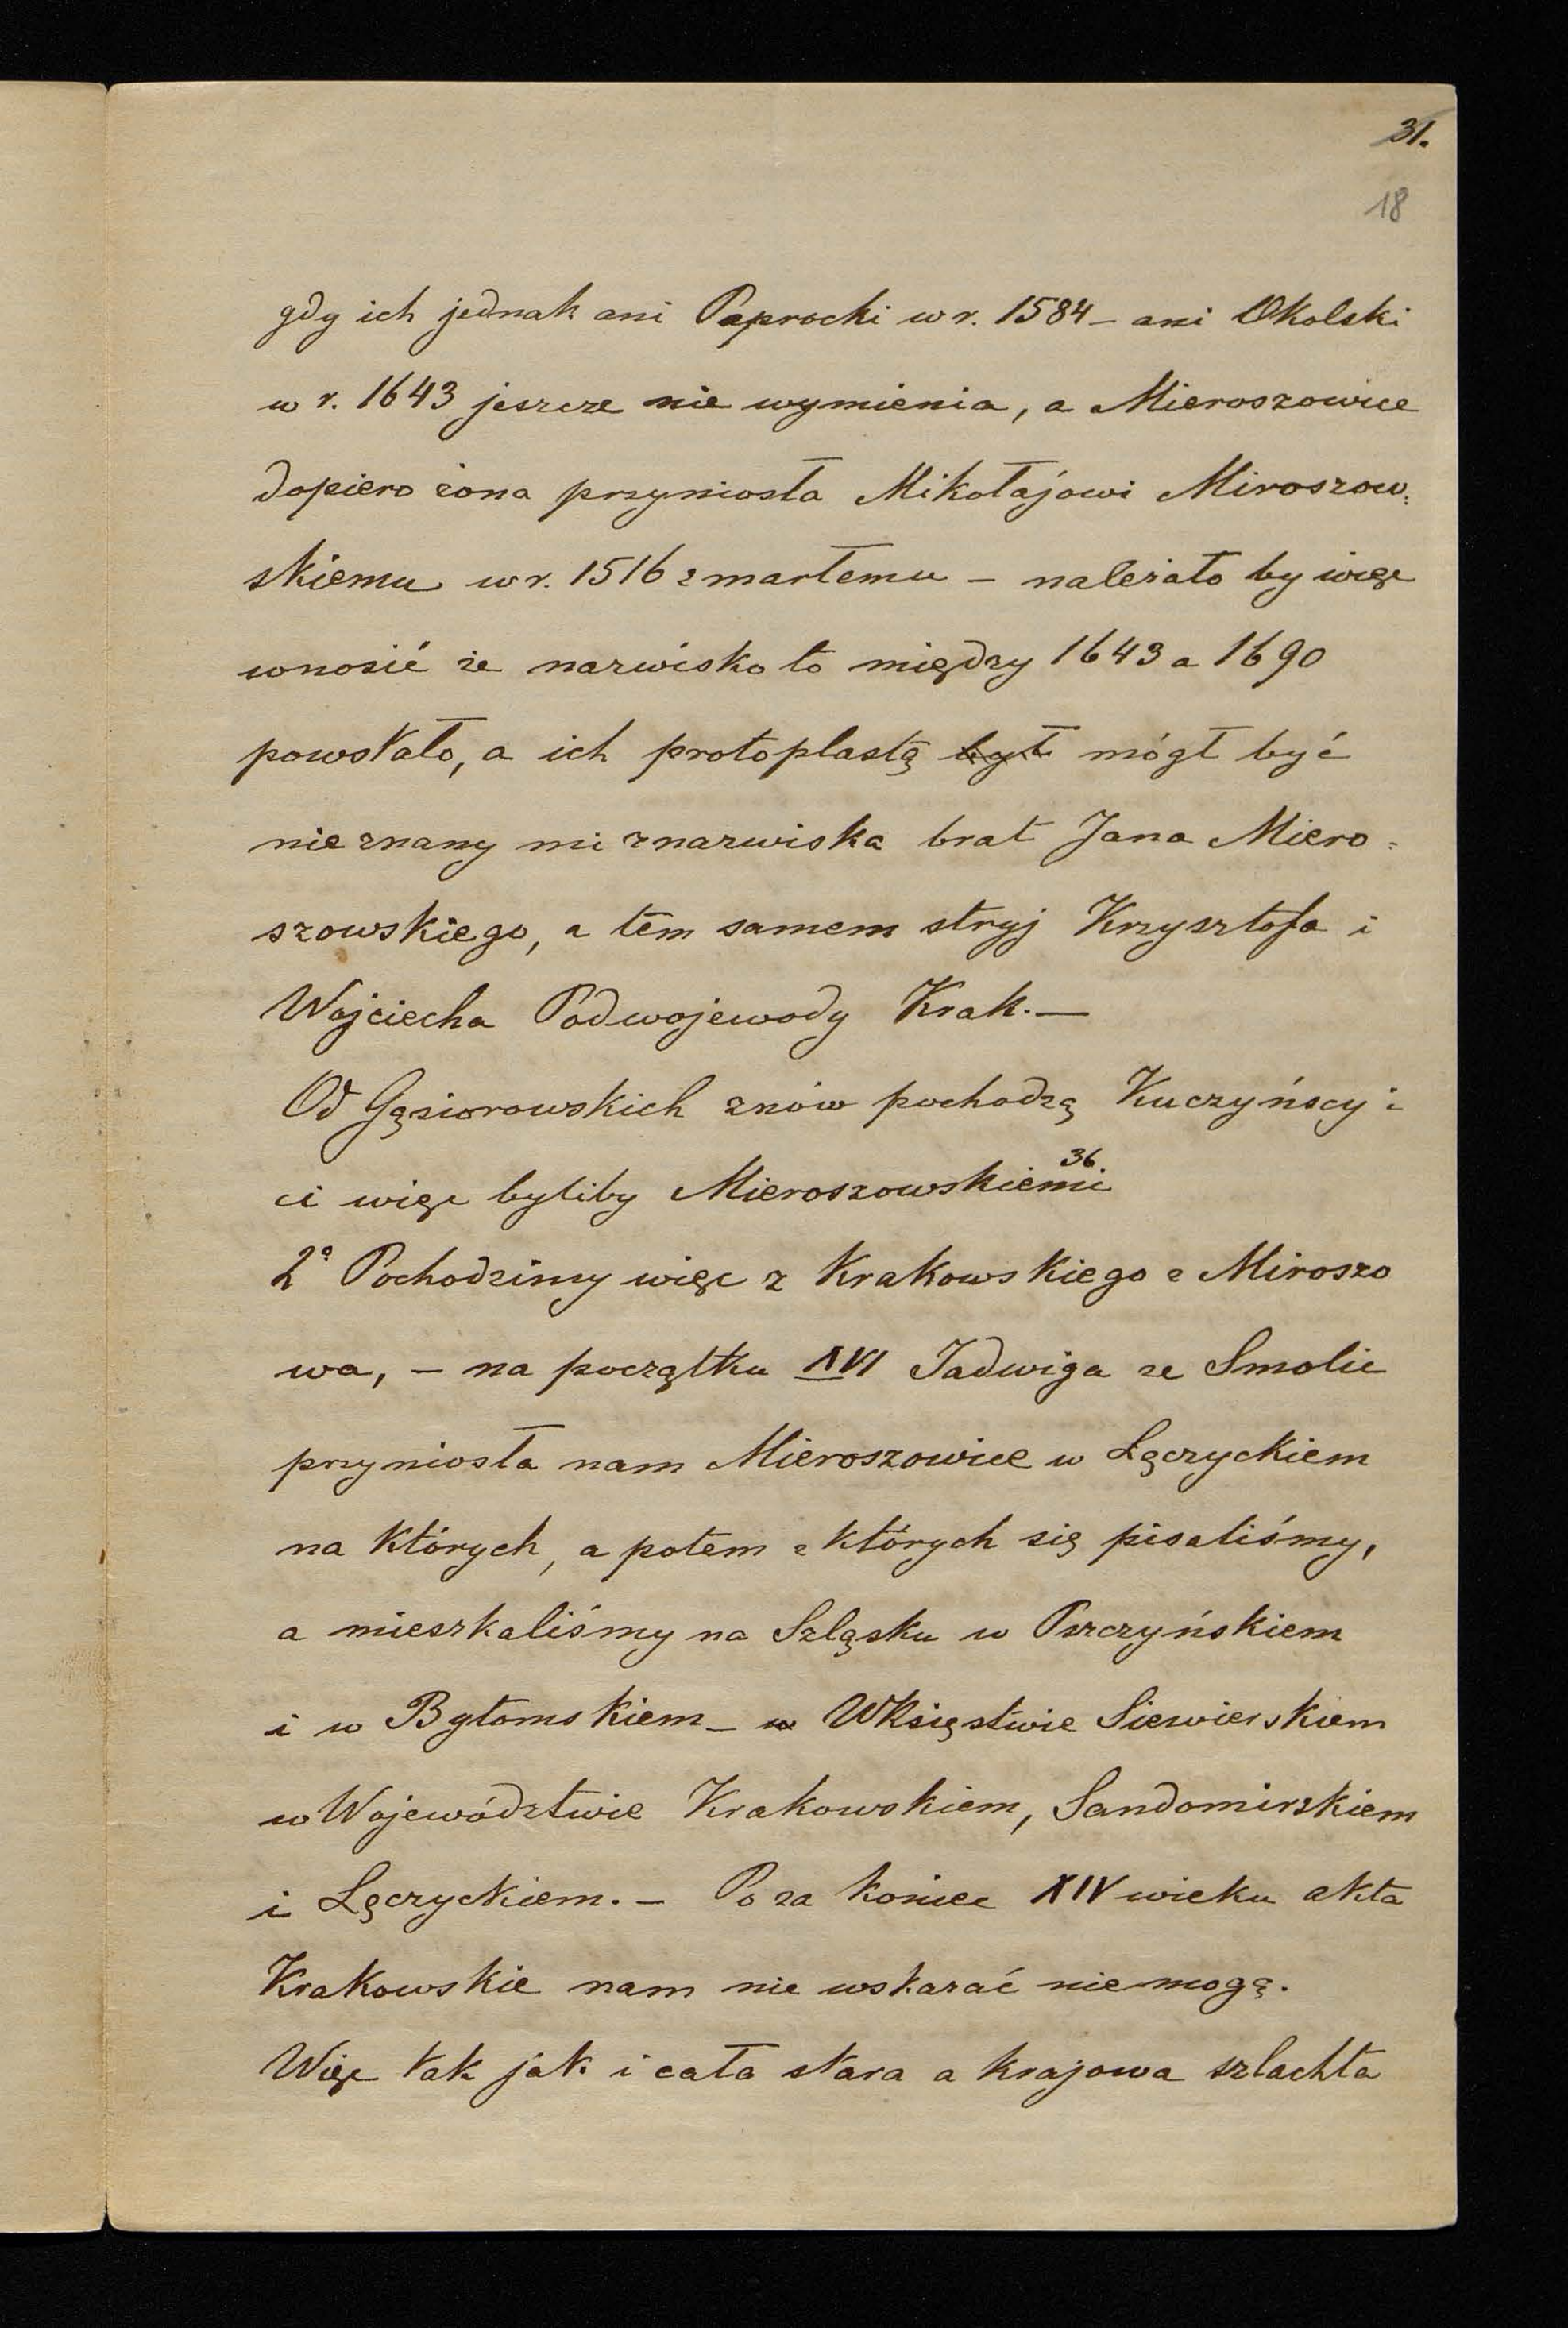 31.
18
gdy ich jednak ani Paprocki w r. 1584 – ani Okolski
w r. 1643 jeszcze nie wymienia, a Mieroszowice
dopiero żona przyniosła Mikołajowi Miroszow=
skiemu w r. 1516 zmarłemu – należało by więc
wnosić że nazwisko to między 1643 a 1690
powstało, a ich protoplastą był mógł być
nie znany mi z nazwiska brat Jana Miero=
szowskiego, a tém samem stryj Krzysztofa i
Wojciecha Podwojewody Krak. –
Od Gąsiorowskich znów pochodzą Kuczyńscy i
ci więc byliby Mieroszowskiemi 36.
2° Pochodzimy więc z Krakowskiego z Miroszo
wa, – na początku XVI Jadwiga ze Smolic
przyniosła nam Mieroszowice w Łęczyckiem
na których, a potem z których się pisaliśmy,
a mieszkaliśmy na Szląsku w Pszczyńskiem
i w Bytomskiem – w W Księstwie Siewierskiem
w Województwie Krakowskiem, Sandomirskiem
i Łęczyckiem. – Po za koniec XIV wieku akta
Krakowskie nam nie wskazać nie mogą.
Więc tak jak i cała stara a krajowa szlachta